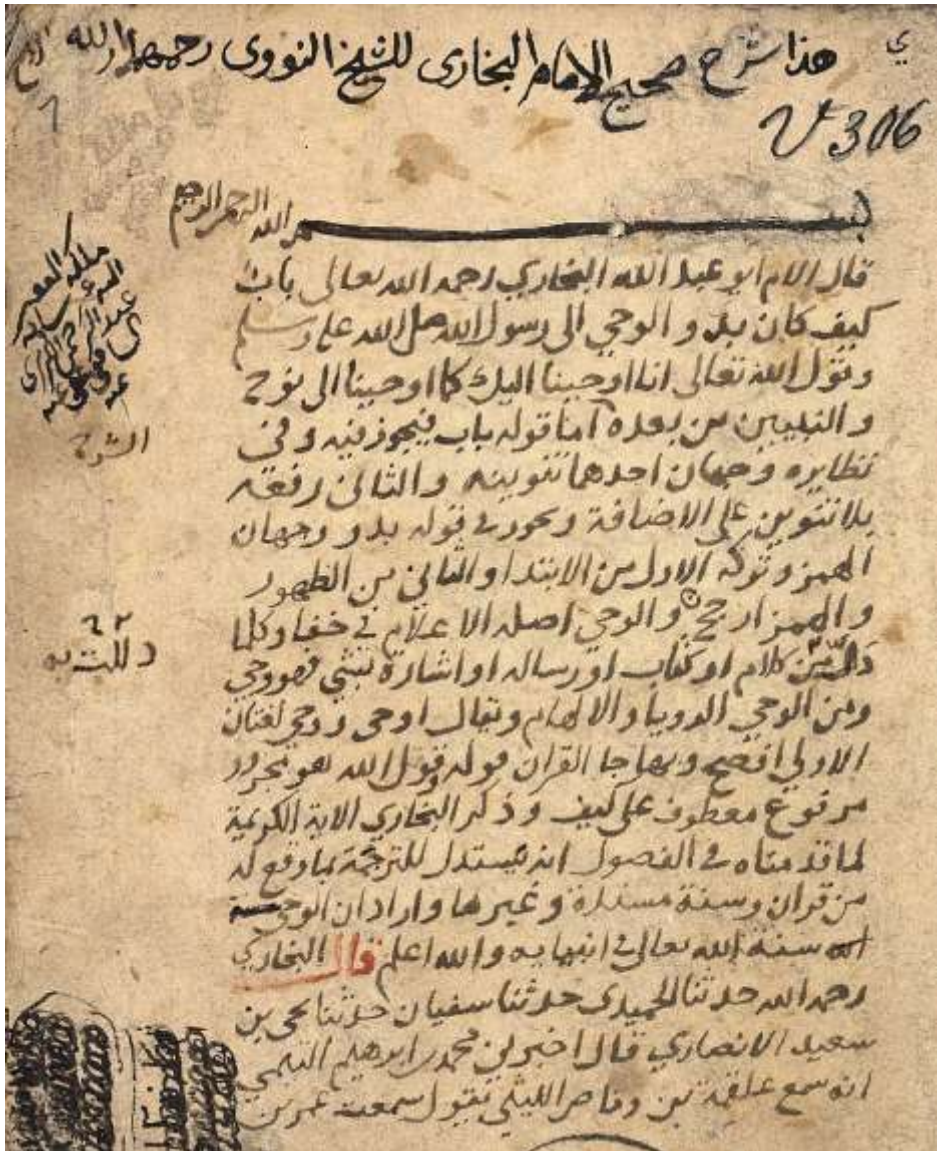 هذا شرح صحيح الإمام البخاري للشيخ النووي رحمهما الله
V 306
بسم الله الرحمن الرحيم
قال الامام ابو عبد الله البخاري رحمه الله تعالى باب
كيف كان بدو الوحي الى رسول الله صلى الله عليه وسلم
وقول الله تعالى انا اوحينا اليك كما اوحينا الى نوح
والنبيين من بعده اما قوله باب فيجوز فيه وفي
نظايره وجهان احدهما تنوينه والثاني رفعه
بلا تنوين على الاضافة ويجوز في قوله بدو وجهان
الهمز وتركه الاول من الابتدا والثاني من الظهور
والهمز ارجح والوحي اصله الاعلام في خفا وكلما
دل من كلام او كتاب او رساله او اشارة بشي فهو وحي
ومن الوحي الرويا والالهام ويقال اوحى ووحى لغتان
الاولى افصح وبها جا القران قوله وقول الله هو مجرور
مرفوع معطوف على كيف وذكر البخاري الاية الكريمة
لما قدمناه في الفصول انه يستدل للترجمة بما وقع له
من قران وسنة مسندة وغيرها واراد ان الوحي
سنة الله تعالى في انبيايه والله اعلم قال البخاري
رحمه الله حدثنا الحميدي حدثنا سفيان حدثنا يحيى بن
سعيد الانصاري قال اخبرني محمد بن ابرهيم التيمي
انه سمع علقمة بن وقاص الليثي يقول سمعت عمر بن